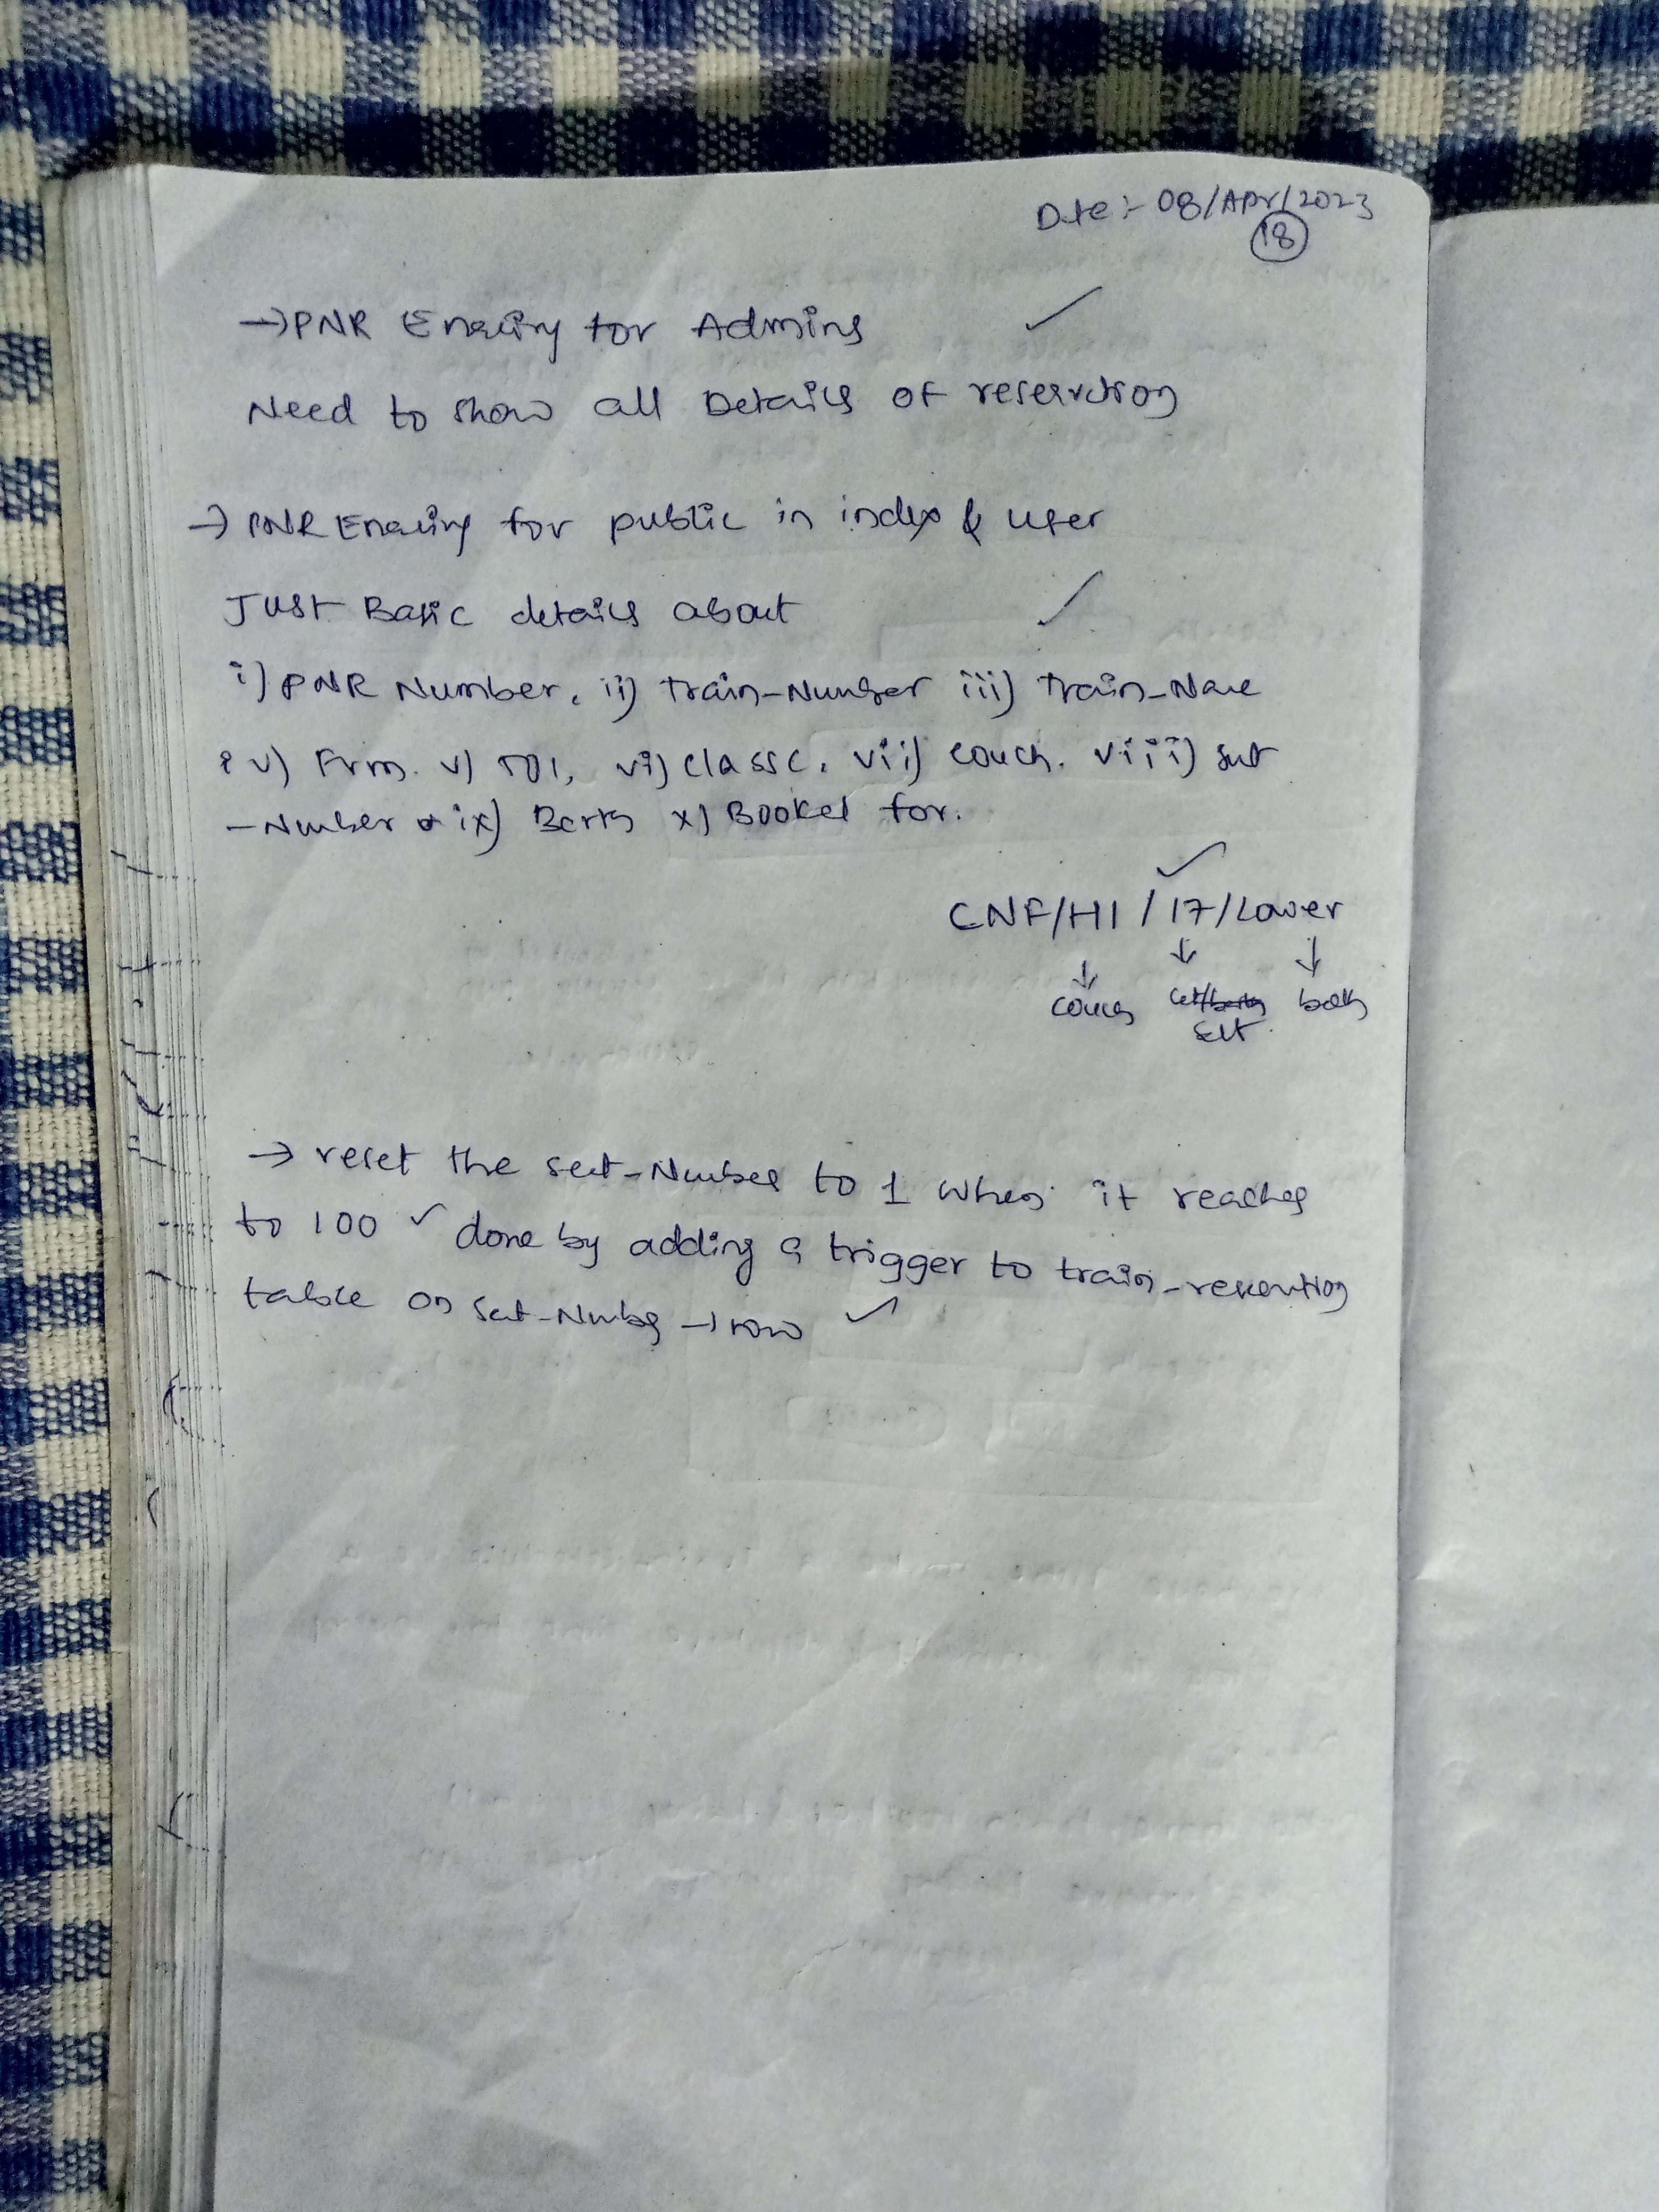 Date :- 08/Apr/2023
18
→ PNR Enquiry for Admins ✓
Need to show all Details of reservation
→ PNR Enquiry for public in index & user
Just Basic details about ✓
i) PNR Number, ii) Train-Number iii) Train-Name
iv) From. v) TO, vi) class, vii) couch. viii) seat
-Number & ix) Berth x) Booked for.
✓
CNF/H1/17/Lower
↓ ↓ ↓
couch berth
seat
→ reset the seat-Number to 1 when it reaches
to 100 ✓ done by adding a trigger to train-reservation
table on seat-Number → row ✓